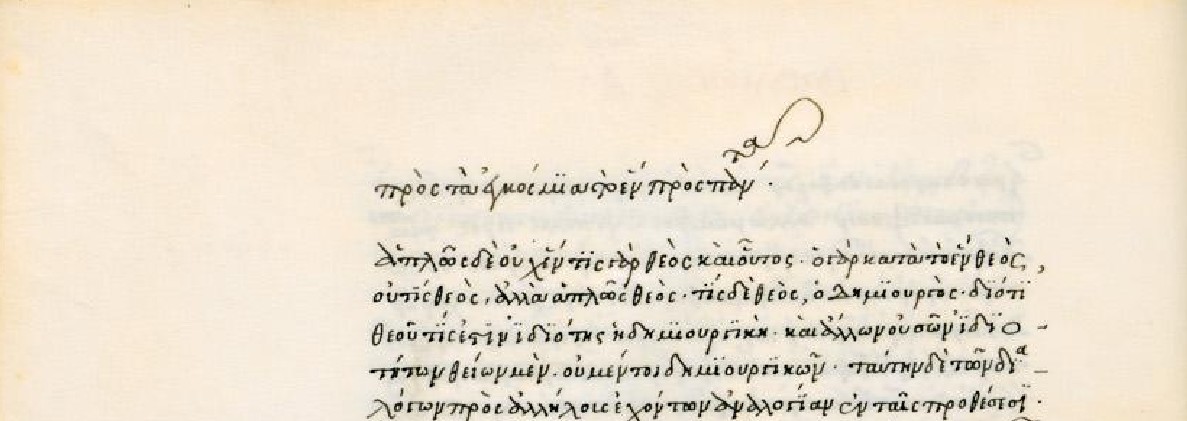 πρὸς τὰ ἐγκόσμια ὡς τὸ ἓν πρὸς πάντα.
ἁπλῶς δὲ οὐχ ἕν· τὶς γὰρ θεὸς καὶ οὗτος. ὁ γὰρ κατὰ τὸ ἓν θεὸς,
οὐ τὶς θεὸς, ἀλλὰ ἁπλῶς θεὸς. τὶς δὲ θεὸς, ὁ δημϊουργὸς. διότϊ
θεοῦ τὶς ἐστὶν ἰδϊότης ἡ δημϊουργϊκὴ. καὶ ἄλλων οὐσῶν ἰδϊο-
τήτων θείων μὲν. οὐ μέντοι δημϊουργϊκῶν. ταύτην δὲ τῶν δϊα-
λόγων πρὸς ἀλλήλοις ἐχόντων ἀναλογίαν ἐν ταῖς προθέσεσϊ.